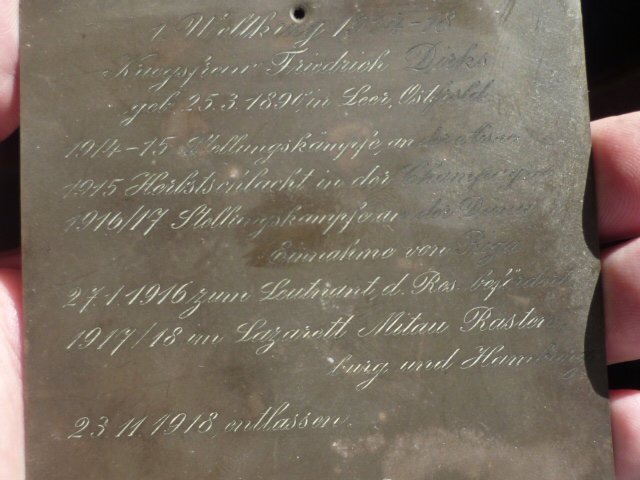 1 Weltkrieg 1914-18
Kriegsfreiw Friedrich Dirks
geb. 25.3.1896, in Leer, Ostfriesld
1914-15 Stellungskämpfe, an der Aisne
1915 Herbstschlacht in der Champagne
1916/17 Stellungskämpfe an der Düna
Einnahme von Riga
27.1.1916, zum Leutnant, d. Res. befördert
1917/18 im Lazarett Mitau Rasten
burg und Hamburg
23.11.1918, entlassen.